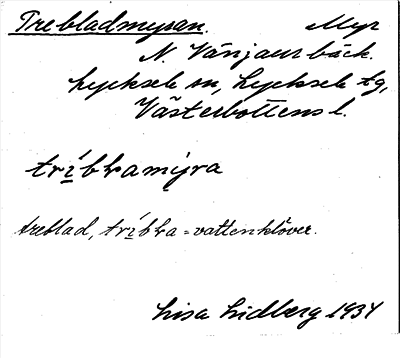 Trebladmyran. Myr
N. Vänjaurbäck.
Lycksele sn, Lycksele tg,
Västerbottens l.
tríbḷamyra
treblad, tríbḷa = vattenklöver.
Lisa Lidberg 1934